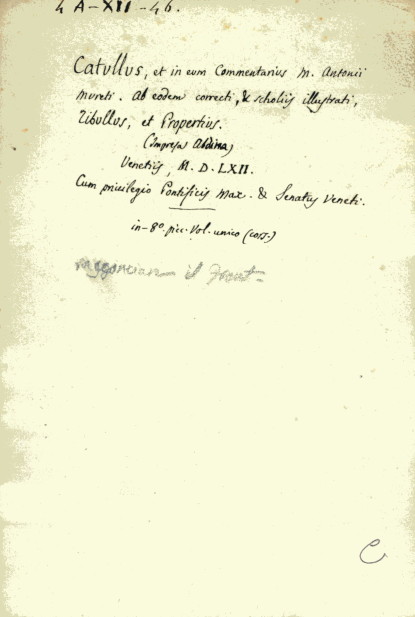 4 A-XII-46.
Catullus, et in eum Commentarius M. Antonii
Mureti. Ab eodem correcti, & scholiis illustrati,
Tibullus, et Propertius.
(Impresa Aldina)
Venetiis, M. D. LXII.
Cum privilegio Pontificis Max. & Senatus Veneti.
in-8º. picc. Vol. unico
il
C